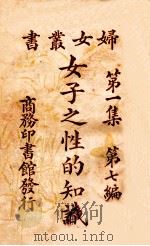 書叢女婦
第一集 第七編
女子之性的知識
商務印書館發行